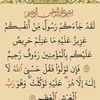 لَقَدْ جَاءَكُمْ رَسُولٌ مِنْ أَنْفُسِكُمْ
عَزِيزٌ عَلَيْهِ مَا عَنِتُّمْ حَرِيصٌ
عَلَيْكُمْ بِالْمُؤْمِنِينَ رَءُوفٌ رَحِيمٌ
فَإِنْ تَوَلَّوْا فَقُلْ حَسْبِيَ اللَّهُ لَا
إِلَٰهَ إِلَّا هُوَ عَلَيْهِ تَوَكَّلْتُ وَهُوَ رَبُّ
الْعَرْشِ الْعَظِيمِ